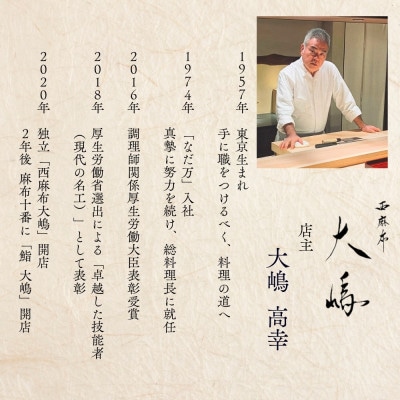 西麻布
大嶋
店主
大嶋 高幸
1957年
東京生まれ
手に職をつけるべく、料理の道へ
1974年
「なだ万」入社
真摯に努力を続け、総料理長に就任
2016年
調理師関係厚生労働大臣表彰受賞
2018年
厚生労働省選出による「卓越した技能者
（現代の名工）」として表彰
2020年
独立「西麻布大嶋」開店
2年後 麻布十番に「鮨 大嶋」開店